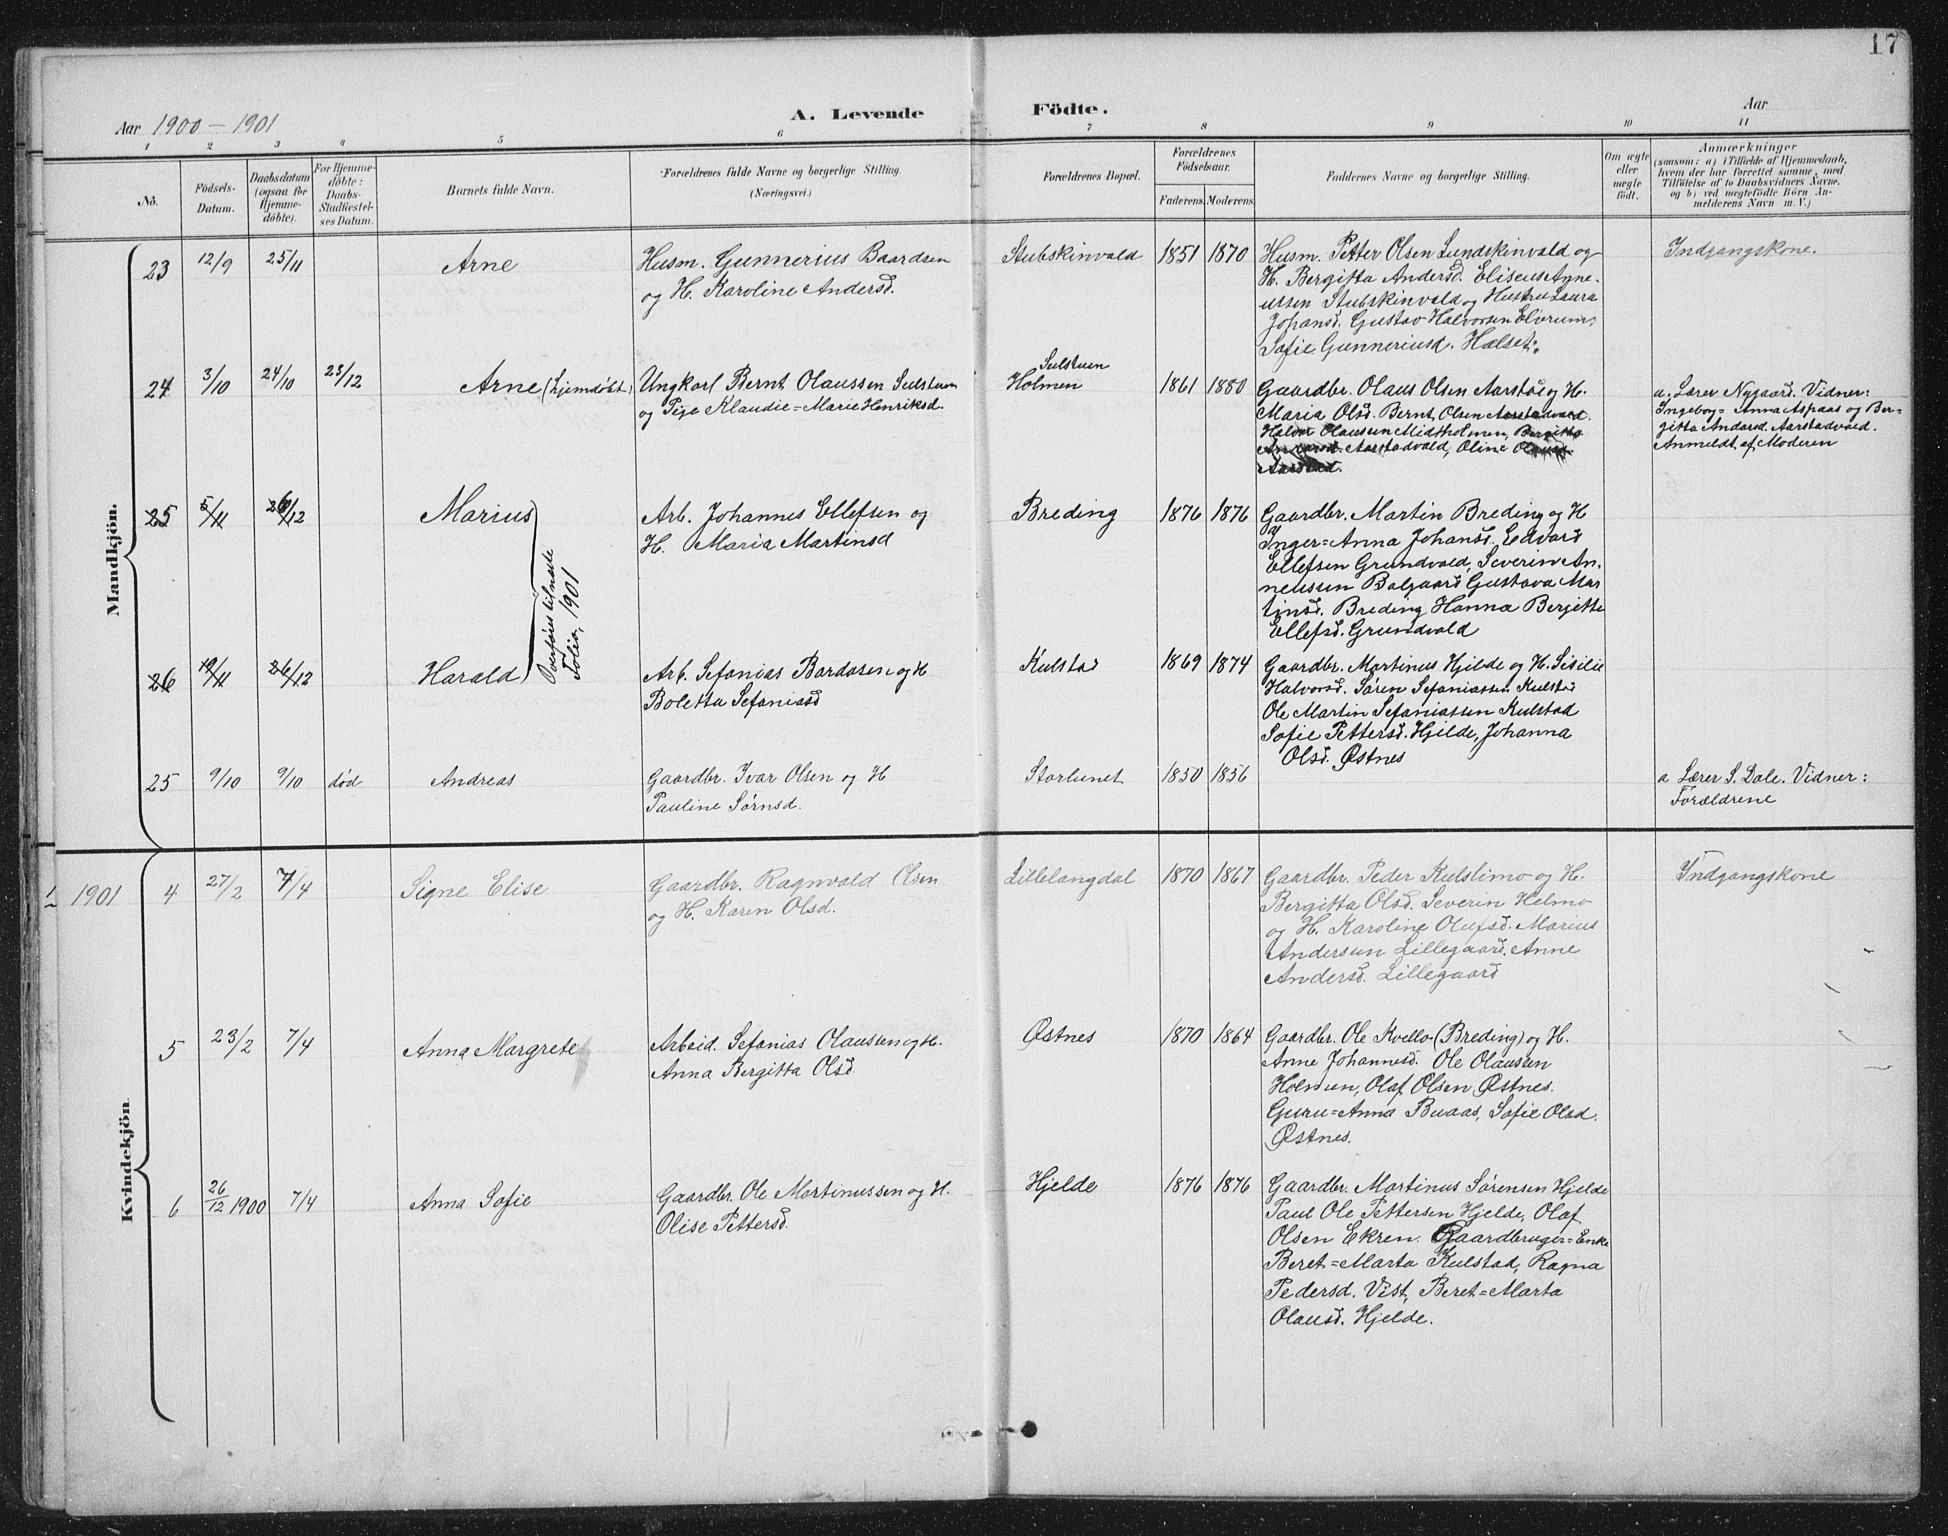 17
Aar 1900 – 1901
A. Levende Födte.
Aar
1 2 3 4 5 6 7 8 9 10 11
No.
Födsels-Datum.
Daabsdatum (ogsaa for Hjemme-döbte).
For Hjemme-döbte: Daabs-Stadfæstel-ses Datum.
Barnets fulde Navn.
Forældrenes fulde Navne og borgerlige Stilling. (Næringsvei.)
Forældrenes Bopæl.
Forældrenes Födselsaar.
Faderens. Moderens.
Faddernes Navne og borgerlige Stilling.
Om ægte eller uægte födt.
Anmærkninger
(saasom: a) i Tilfælde af Hjemmedaab,
hvem der har forrettet samme, med
Tilföielse af to Daabsvidners Navne.
og b) ved uægtefödte Börn An-
melderens Navn m. V.)
Mandkjön.
23 12/9 25/11 Arne
Husm. Gunnerius Baardsen
og H. Karoline Andersd.
Stubskinvald 1851 1870
Husm. Petter Olsen Lundskinvald og
H. Bergitta Andersd. Eliseus Agne-
ussen Stubskinvald og Hustru Laura
Johansd. Gustav Halvorsen Elverum,
Sofie Gunneriusd. Halset.
Indgangskone.
24 3/10 24/10 23/12 Arne (hjemdøbt)
Ungkarl Bernt Olaussen Sulstuen
og Pige Klaudie=Marie Henriksd.
Sulstuen
Holmen 1861 1880
Gaardbr. Olaus Olsen Aarstad og H.
Maria Olsd. Bernt Olsen Aarstadvald.
Halvor Olaussen Midtholmen, Bergitta
Andersd. Aarstadvald, Oline Olausd.
Aarstad.
a. Lærer Nygaard. Vidner:
Ingeborg=Anna Aspaas og Ber=
gitta Andersd. Aarstadvald.
Anmeldt af Moderen
25 5/11 26/12 Marius
Arb. Johannes Ellefsen og
H. Maria Martinsd
Breding 1876 1876
Gaardbr. Martin Breding og H
Inger=Anna Johansd. Edvard
Ellefsen Grundvald, Severin An-
neussen Balgaard Gustava Mar
tinsd. Breding Hanna Bergitte
Ellefsd. Grundvald
Overføres til næste
Folio, 1901
26 12/11 26/12 Harald
Arb. Sefanias Bardosen og H
Boletta Sefaniasd
Kulstad 1869 1874
Gaardbr. Martinus Hjelde og H. Sisilie
Halvorsd. Søren Sefaniassen Kulstad
Ole Martin Sefaniassen Kulstad
Sofie Pettersd. Hjelde, Johanna
Olsd. Østnes
25 9/10 9/10 død Andreas
Gaardbr. Ivar Olsen og H
Pauline Sørnsd.
Storlunet 1850 1856
a Lærer S. Dale. Vidner:
Forældrene
Kvindekjön.
1901 4 27/2 7/4 Signe Elise
Gaardbr. Ragnvald Olsen
og H. Karen Olsd.
Lillelangdal 1870 1867
Gaardbr. Peder Kulslimo og H.
Bergitta Olsd. Severin Helmo
og H. Karoline Olufsd. Marius
Andersen Lillegaard. Anne
Andersd. Lillegaard
Indgangskone
5 23/2 7/4 Anna Margrete
Arbeid. Sefanias Olaussen og H.
Anna Bergitta Olsd.
Østnes 1870 1864
Gaardbr. Ole Kvello (Breding) og H.
Anne Johannesd. Ole Olaussen
Holmen, Olaf Olsen Østnes.
Guru=Anna Buaas, Sofie Olsd.
Østnes.
6 26/12 1900 7/4 Anna Sofie
Gaardbr. Ole Martinussen og H.
Olise Pettersd.
Hjelde 1876 1876
Gaardbr. Martinus Sørensen Hjelde
Paul Ole Pettersen Hjelde, Olaf
Olsen Ekren. Gaardbruger=Enke
Beret=Marta Kulstad, Ragna
Pedersd. Vist, Beret=Marta
Olausd. Hjelde.